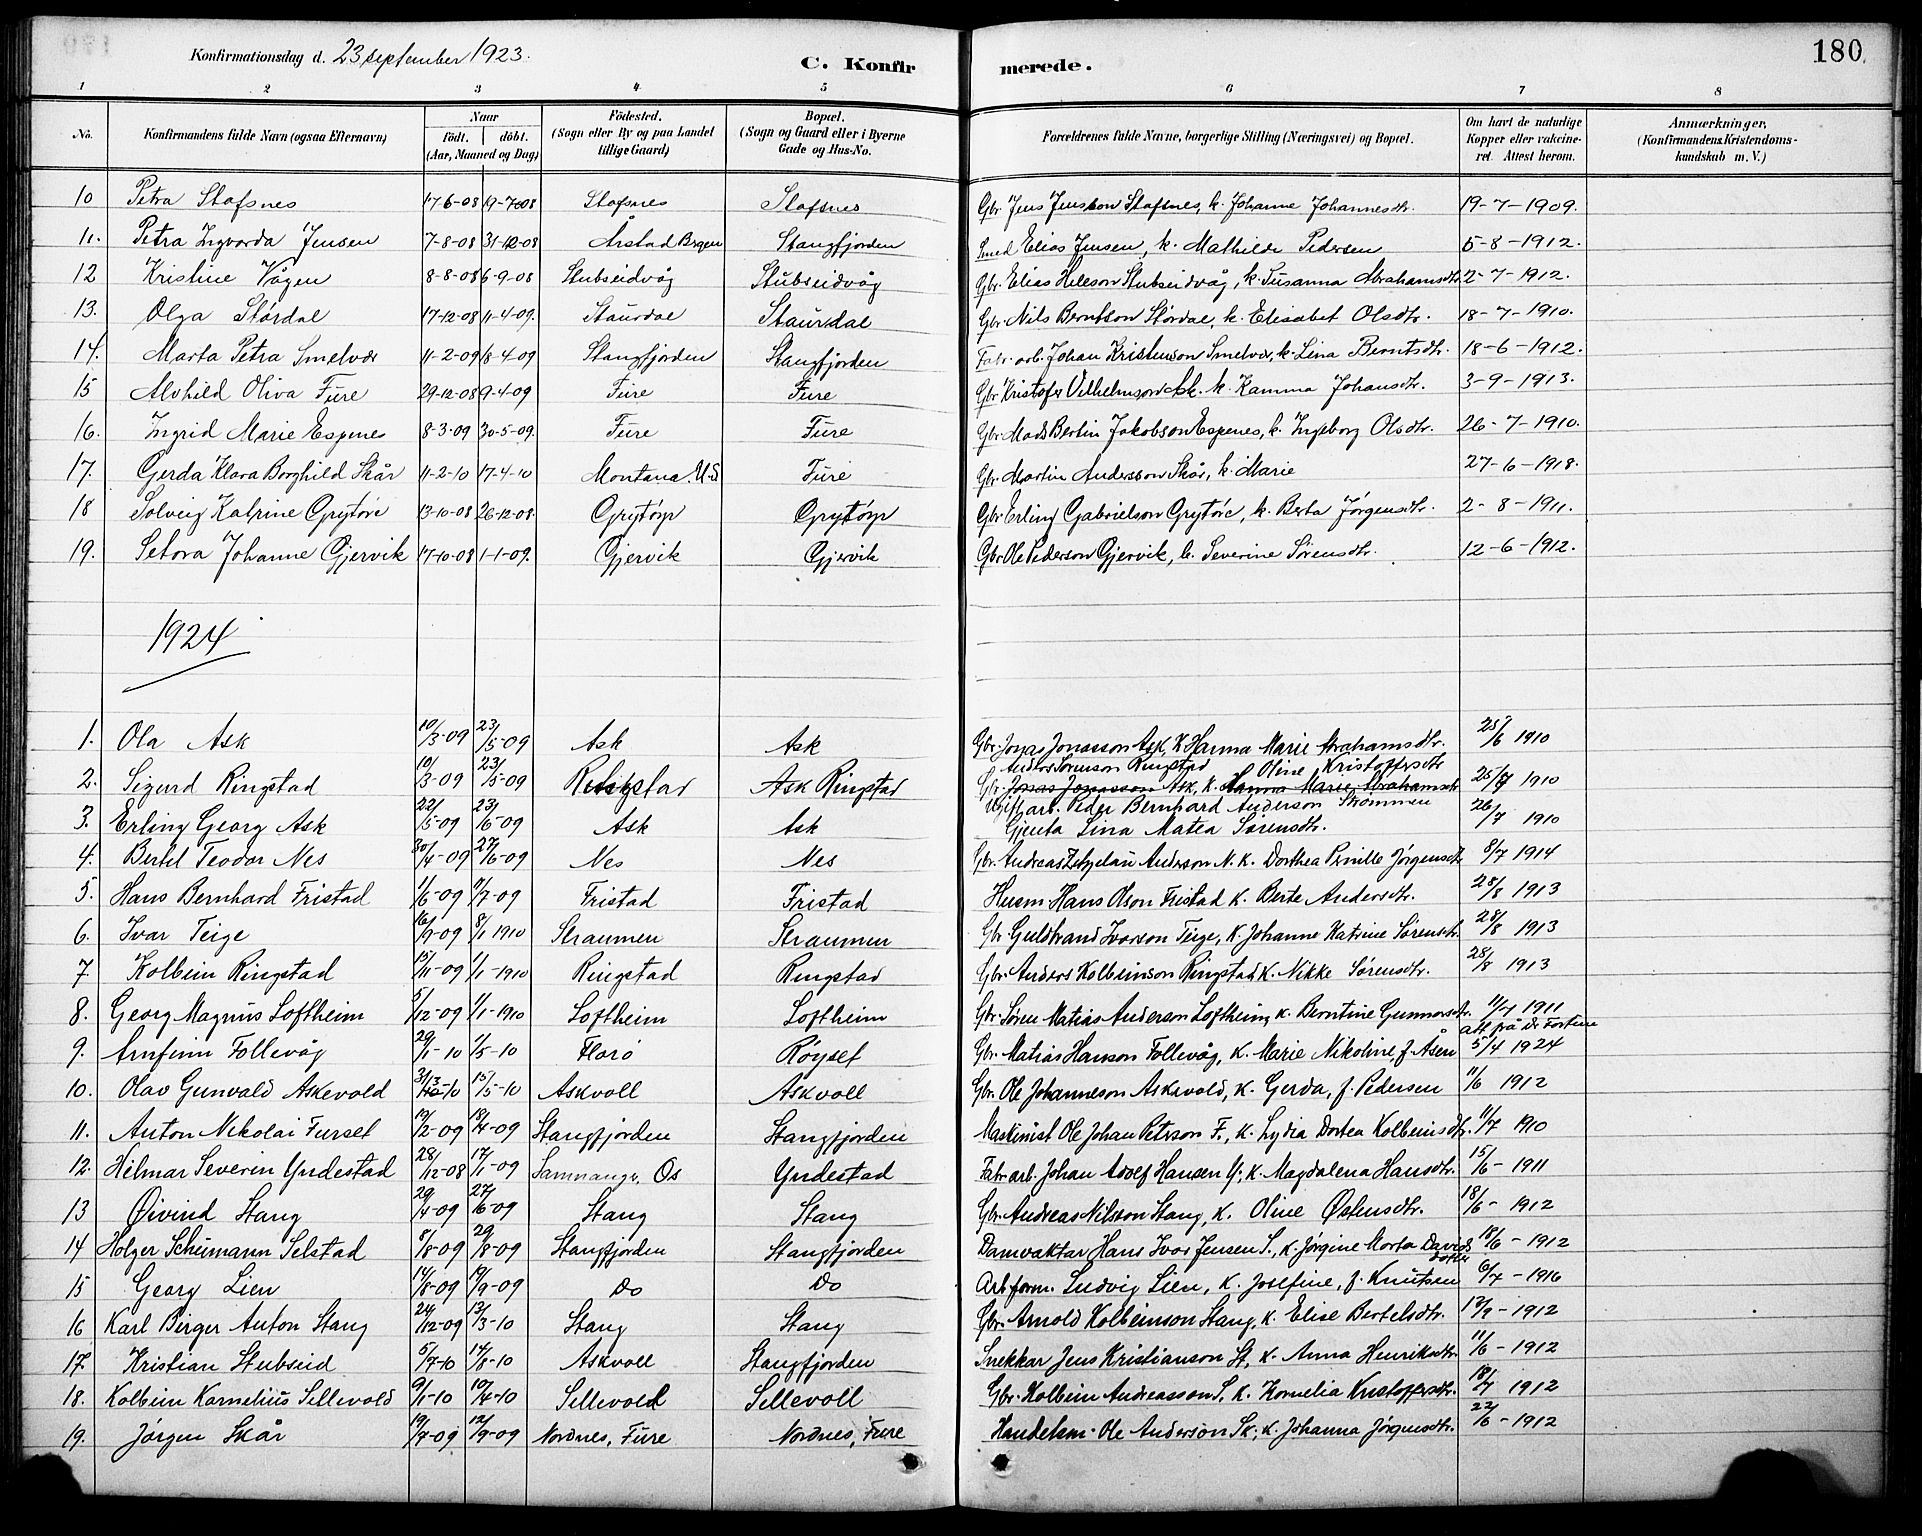 Konfirmationsdag d. 23 september 1923.
C. Konfirmerede.
180
1 2 3 4 5 6 7 8
No. Konfirmandens fulde Navn (ogsaa Efternavn) Naar født. døbt. (Aar, Maaned og Dag) Fødested. (Sogn eller By og paa Landet tillige Gaard) Bopæl. (Sogn og Gaard eller i Byerne Gade og Hus-No. Forældrenes fulde Navne, borgerlige Stilling (Næringsvei) og Bopæl. Om havt de naturlige Kopper eller vakcineret. Attest herom. Anmærkninger, (Konfirmandens Kristendomskundskab m. V.)
10 Petra Stafsnes 17-6-08 19-7-08 Stafsnes Stafsnes Gbr. Jens Jensson Stafsnes, k. Johanne Johannesdtr. 19-7-1909.
11. Petra Ingvarda Jensen 7-8-08 31-12-08 Årstad Bergen Stangfjorden Smed Elias Jensen, k. Mathilde Pedersen 5-8-1912.
12 Kristine Vågen 8-8-08 6-9-08 Stubseidvåg Stubseidvåg Gbr. Elias Stubseidvåg, k. Susanna Abrahamsdtr. 2-7-1912.
13. Olga Stårdal 17-12-08 11-4-09. Staurdal Staurdal Gbr. Nils Berntson Stårdal, k. Elisabet Olsdtr. 18-7-1910.
14. Marta Petra Smelvær 11-2-09 18-4-09 Stangfjorden Stangfjorden Fabr. arb. Johan Kristenson Smelvær, k. Lina Berntsdtr. 18-6-1912.
15 Alvhild Oliva Fure 29-12-08 9-4-09 Fure Fure Gbr Kristofer Vilhelmson k. Kamma Johansdtr. 3-9-1913.
16. Ingrid Marie Espenes 8-3-09 30-5-09. Fure Fure Gbr. Mads Bertin Jakobson Espenes, k. Ingeborg Olsdtr. 26-7-1910.
17. Gerda Klara Borghild Skår 11-2-10 17-4-10 Montana. U-S Fure Gbr. Martin Andersson Skår, k. Marie 27-6-1918.
18 Solveig Katrine Grytøre 13-10-08 26-12-08. Grytøyr Grytøyr Gbr Erling Gabrielson Grytøre, k. Berta Jørgensdtr. 2-8-1911.
19. Setora Johanne Gjervik 17-10-08 1-1-09. Gjervik Gjervik Gbr Ole Pederson Gjervik, k. Severine Sørensdtr. 12-6-1912.
1924
1. Ola Ask 10/3-09 23/5-09 Ask Ask Gbr. Jonas Jonasson Ask, K Hanna Marie Abrahamsdtr. 25/6 1910
Anders Sørenson Ringstad Oline Kristoffersdtr
2. Sigurd Ringstad 10/3-09 23/5-09 Ringstad Ask Ringstad Gbr. Jonas Jonasson Ask, K. Hanna Marie Abrahamsdtr 25/7 1910
Ugift arb. Peder Bernhard Anderson Strømmen
3. Erling Georg Ask 22/5-09 23/6-09 Ask Ask Gjenta Lina Matea Sørensdtr. 26/7 1910
4. Bertel Teodor Nes 30/4-09 27/6-09 Nes Nes Gbr. Andreas Anderson N. K. Dorthea Pernille Jørgensdtr 8/7 1914
5. Hans Bernhard Fristad 1/6-09 11/7-09 Fristad Fristad Husm Hans Olson Fristad K. Berte Andersdtr. 28/8 1913
6. Ivar Teige 16/9-09 8/1 1910 Straumen Straumen Gbr Guldbrand Ivarson Teige, K. Johanne Katrine Sørensdtr 28/8 1913
7. Kolbein Ringstad 15/11-09 1/1-1910 Ringstad Ringstad Gbr. Anders Kolbeinson Ringstad K. Nikke Sørensdtr. 28/8 1913
8. Georg Magnus Loftheim 5/12-09 1/1-1910 Loftheim Loftheim Gbr. Søren Matias Anderson Loftheim, K. Berntine Gunnarsdtr. 11/7 1911
att frå Dr Fortun
9. Arnfinn Follevåg 29/1-10 1/5-10 Florø Røyset Gbr. Matias Hanson Follevåg, K. Marie Nikoline, f. Åsen 5/4 1924
10. Olav Gunvald Askevold 3/3-10 15/5-10 Askvoll Askvoll Gbr. Ole Johanneson Askevold, K. Gerda, f. Pedersen 11/6 1912
11. Anton Nikolai Furset 19/2-09 18/4-09 Stangfjorden Stangfjorden Maskinist Ole Johan Peterson F., K. Lydia Dortea Kolbeinsdtr. 11/7 1910
12. Hilmar Severin Yndestad 28/12-08 17/1-09 Samnanger, Os Yndestad Fabr. arb. Johan Adolf Hansen Y., K. Magdalena Hansdtr. 15/6-1911
13 Øivind Stang 20/4-09 27/6-09 Stang Stang Gbr. Andreas Nilsson Stang, K. Oline Østensdtr. 18/6-1912
14 Holger Schumann Selstad 8/8-09 29/8-09 Stangfjorden Stangfjorden Damvaktar Hans Ivar Jensen S., K. Jørgine Marta Davids dotter 18/6-1912
15 Georg Lien 14/8-09 19/9-09 Do Do Arb.form. Ludvig Lien, K. Josefine, f. Knutsen 6/7-1916
16 Karl Birger Anton Stang 24/12-09 13/3-10 Stang Stang Gbr. Arnold Kolbeinson Stang, K. Elise Bertelsdtr. 17/9-1912
17. Kristian Stubseid 5/7-10 14/8-10 Askvoll Stangfjorden Snekkar Jens Kristianson St, K. Anna Henriksdtr. 11/6-1912
18. Kolbein Kornelius Sellevold 9/1-10 10/4-10 Sellevold Sellevoll Gbr. Kolbein Andreasson S, K. Kornelia Kristoffersdtr. 18/7 1912
19. Jørgen Skår 19/7-09 12/9-09 Nordnes, Fure Nordnes, Fure Handelsm. Ole Anderson Sk., K. Johanna Jørgensdtr. 22/6-1912